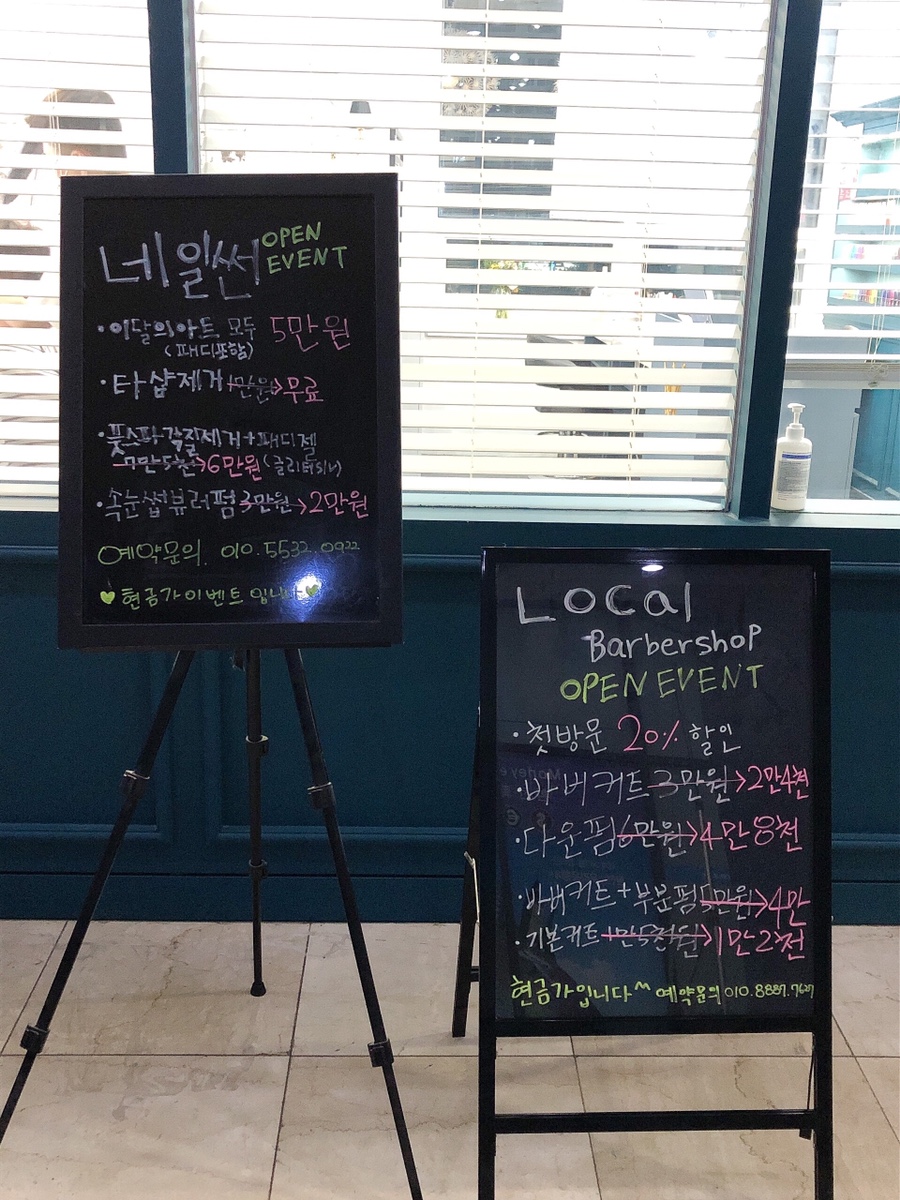 네일썬 OPEN EVENT
·이달의아트 모두 5만원
(패디포함)
·타샵제거 만원→무료
·풋스파각질제거+패디젤
7만5천→6만원(글리터or시럽)
·속눈썹뷰러펌 3만원→2만원
예약문의. 010.5532.0922
♥현금가이벤트 입니다♥
Local
Barbershop
OPEN EVENT
·첫방문 20% 할인
·바버커트 3만원→2만4천
·다운펌 6만원→4만8천
·바버커트+부분펌 5만원→4만
·기본커트 1만5천원→1만2천
현금가입니다^^ 예약문의 010.8887.7627
Money